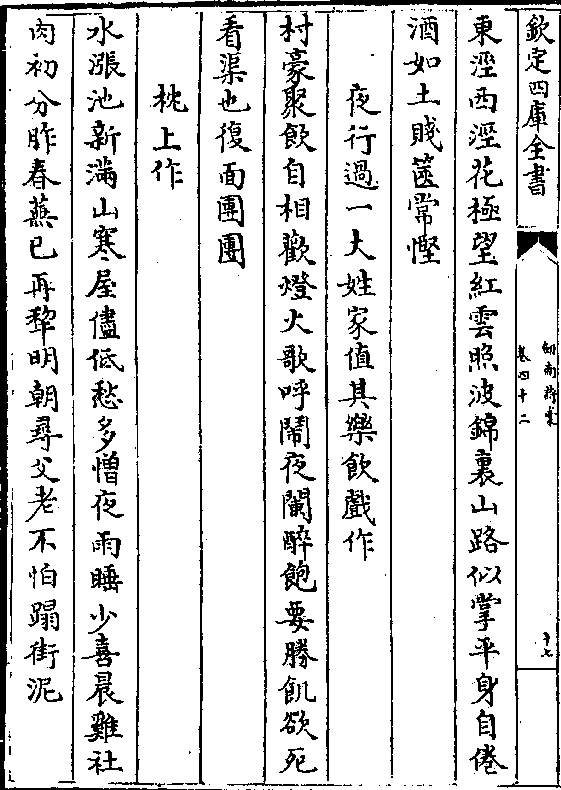 欽定四庫全書
劍南詩藁
卷四十二
十七
東涇西涇花極望紅雲照波錦裏山路似掌平身自倦
酒如土賤篋常慳
夜行過一大姓家值其樂飲戲作
村豪聚飲自相歡燈火歌呼鬧夜闌醉飽要勝飢欲死
看渠也復面團團
枕上作
水漲池新滿山寒屋儘低愁多憎夜雨睡少喜晨雞社
肉初分胙春蕪已再犂明朝尋父老不怕蹋街泥